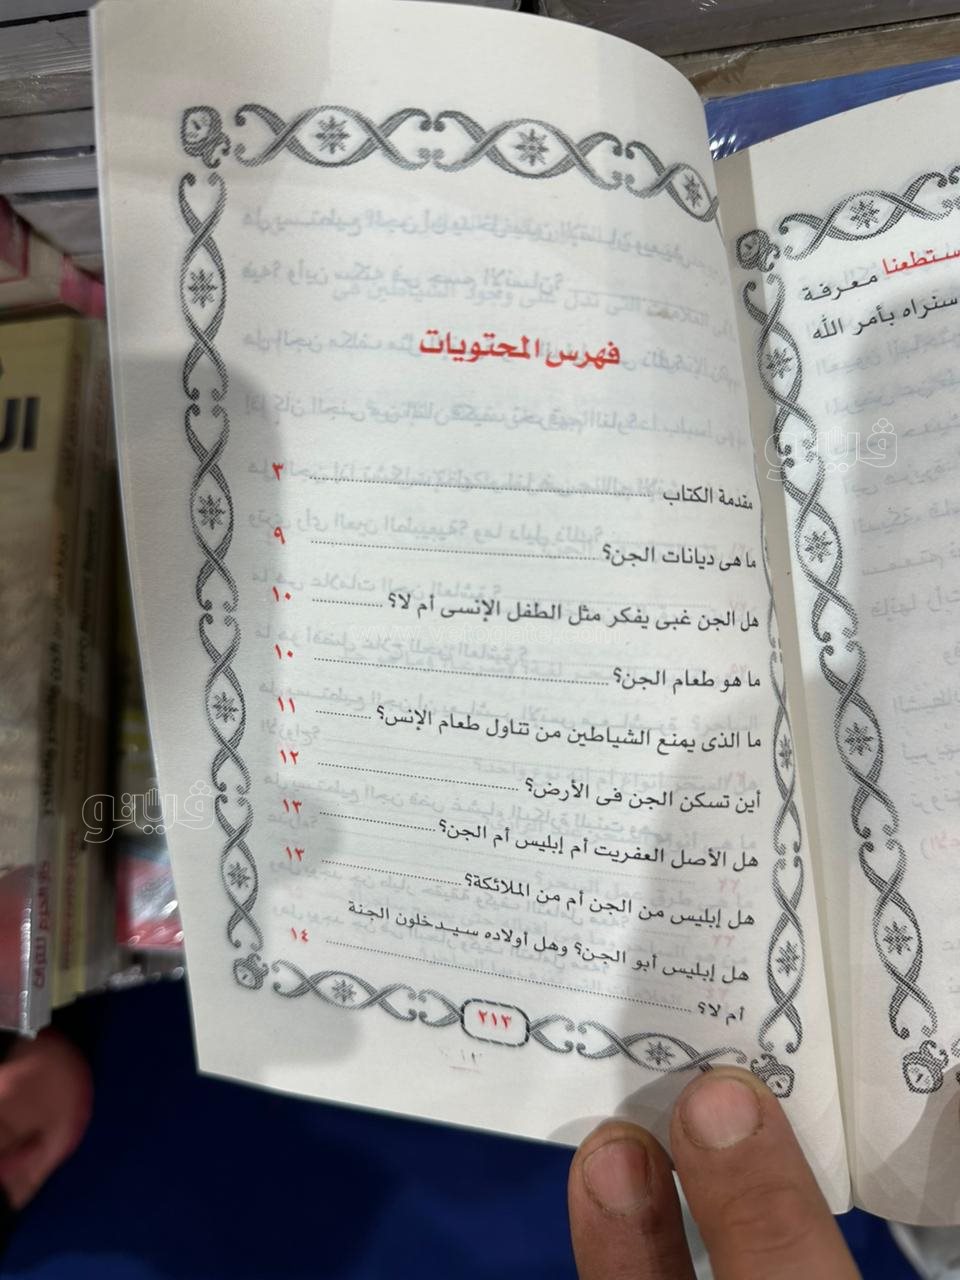 فهرس المحتويات
مقدمة الكتاب ٣
ما هى ديانات الجن؟ ٩
هل الجن غبى يفكر مثل الطفل الإنسى أم لا؟ ١٠
ما هو طعام الجن؟ ١٠
ما الذى يمنع الشياطين من تناول طعام الإنس؟ ١١
أين تسكن الجن فى الأرض؟ ١٢
هل الأصل العفريت أم إبليس أم الجن؟ ١٣
هل إبليس من الجن أم من الملائكة؟ ١٣
هل إبليس أبو الجن؟ وهل أولاده سيدخلون الجنة
أم لا؟ ١٤
٢١٣
ستطعنا معرفة
سنراه بأمر الله
فيتو
فيتو
www.vetogate.com